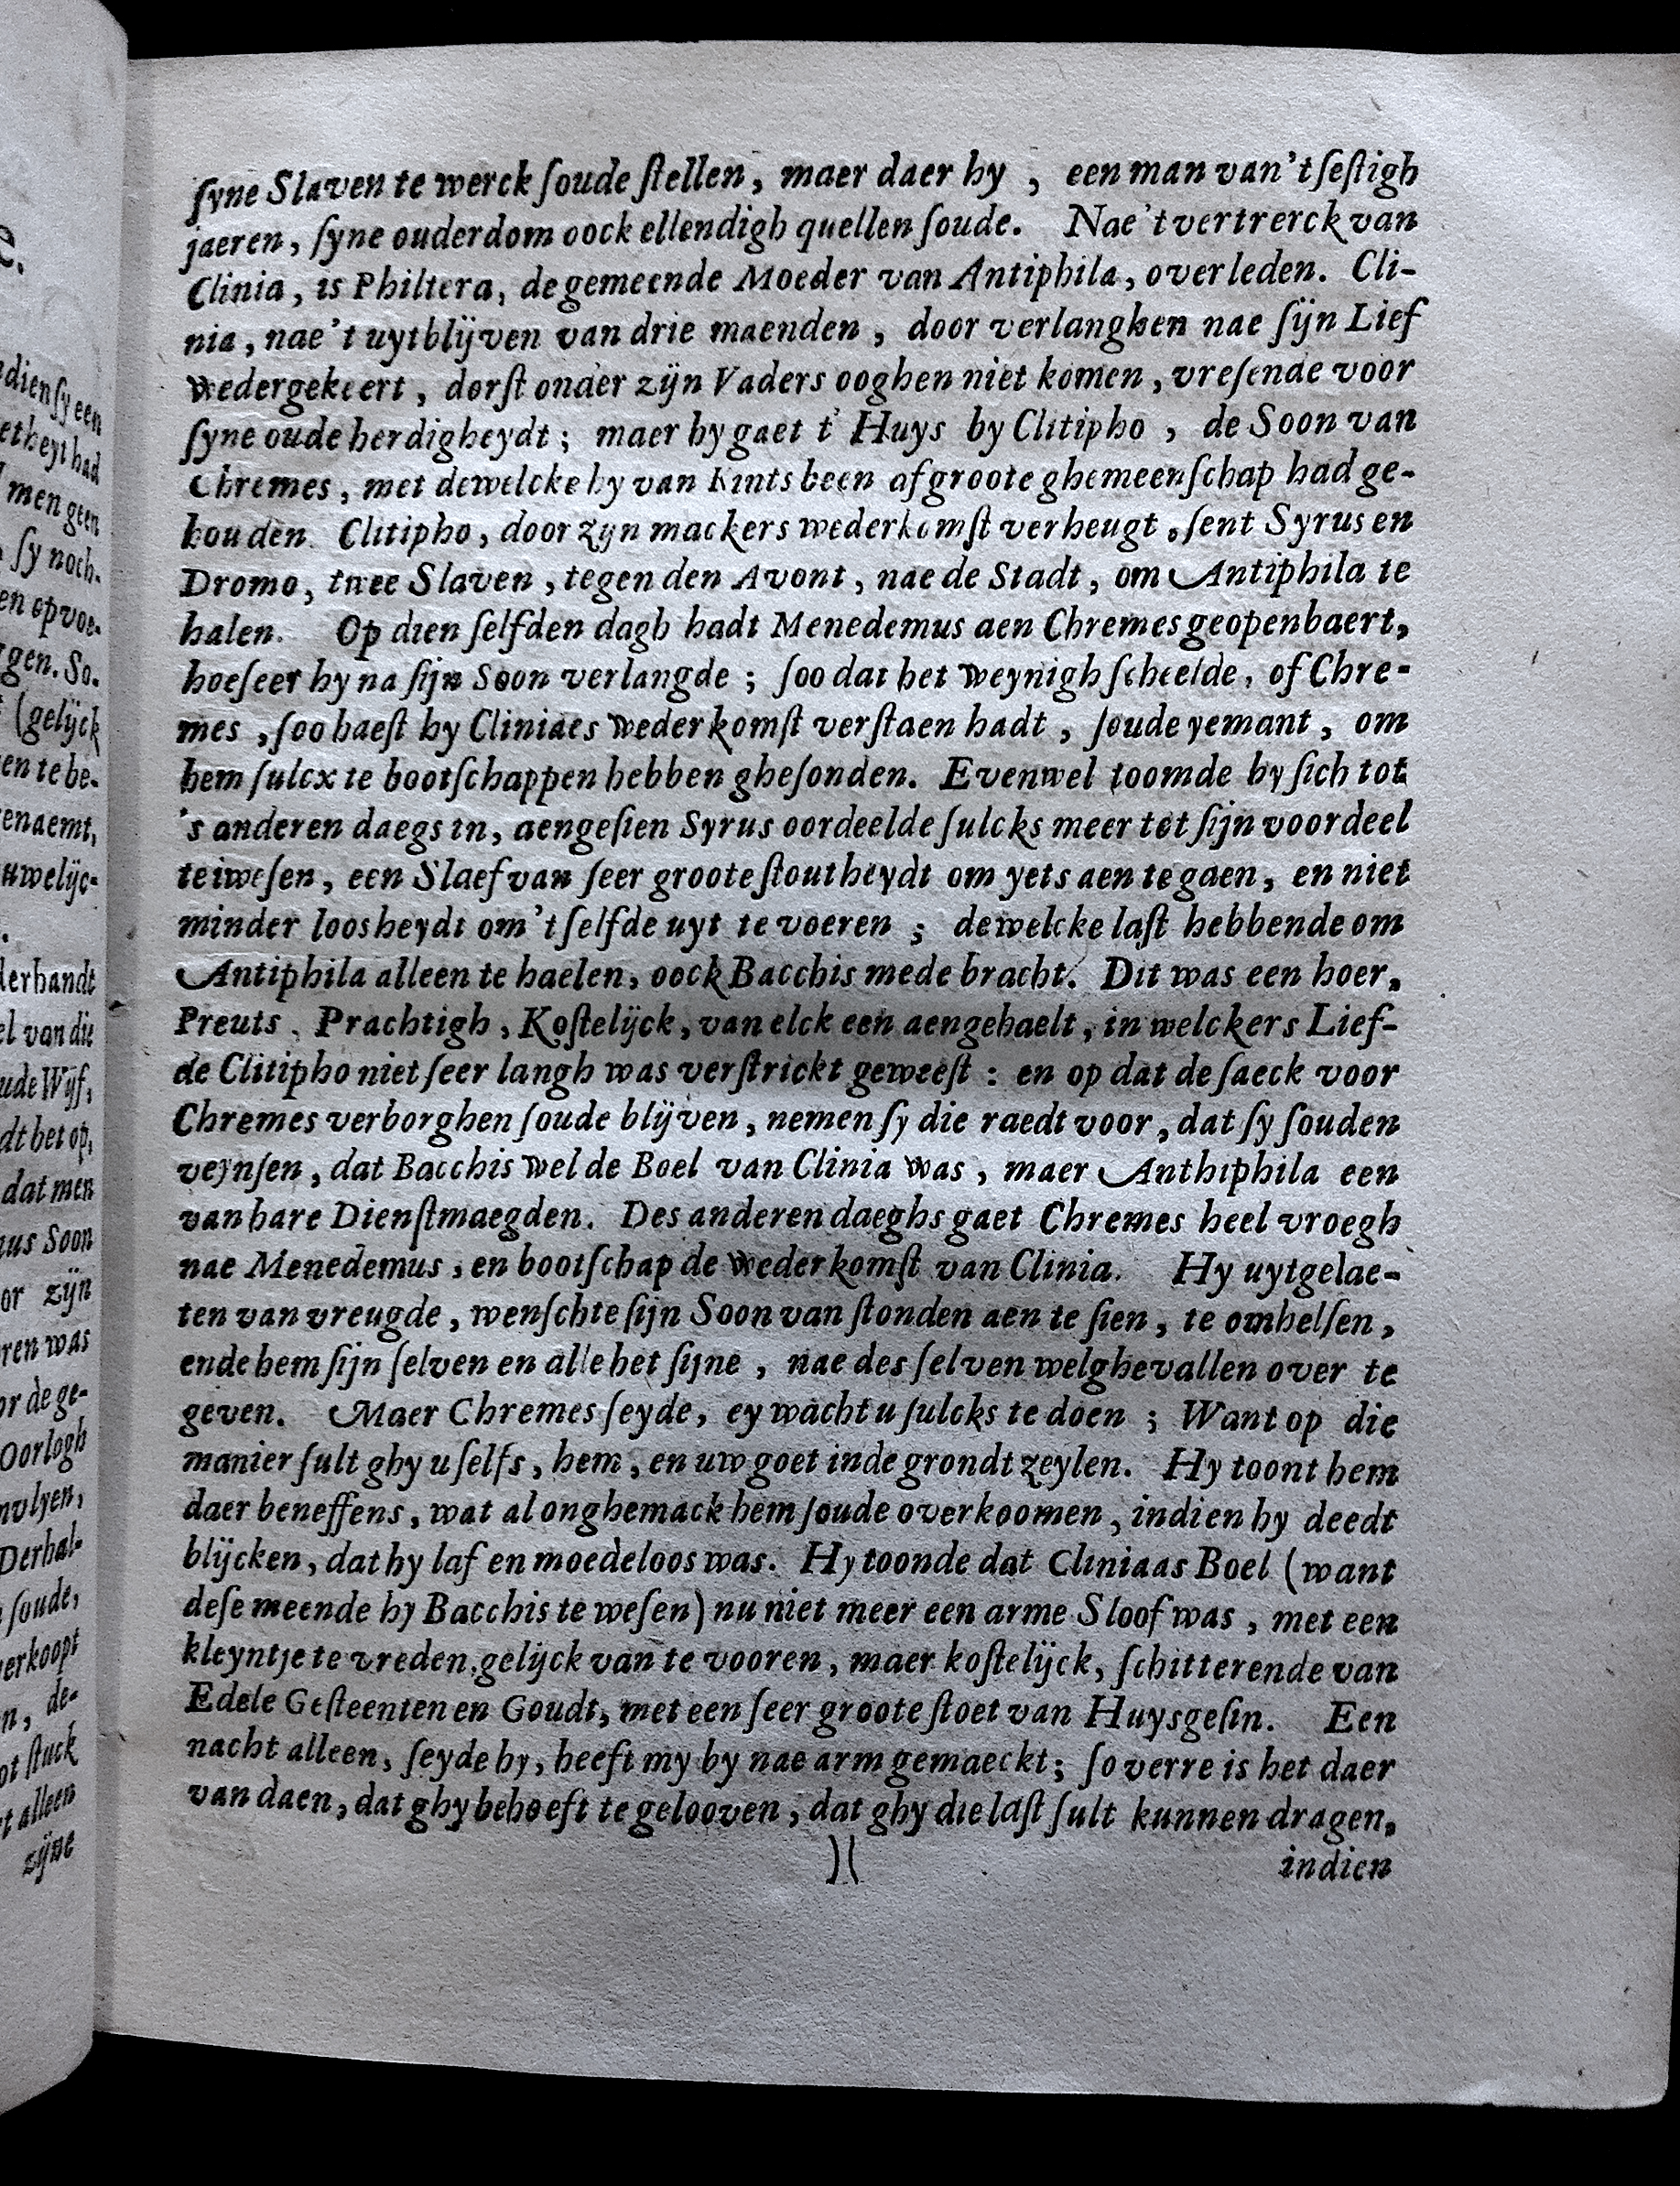 ſyne Slaven te werck ſoude ſtellen, maer daer hy , een man van't ſeſtigh
jaeren, ſyne ouderdom oock ellendigh quellen ſoude. Nae't vertrerck van
Clinia, is Philtera, de gemeende Moeder van Antiphila, overleden. Cli-
nia, nae't uytblijven van drie maenden, door verlanghen nae ſijn Lief
wedergekeert, dorſt onder zijn Vaders ooghen niet komen, vreſende voor
ſyne oude herdigheydt; maer hy gaet t' Huys by Clitipho, de Soon van
Chremes, met dewelcke hy van Kints been af groote ghemeenſchap had ge-
houden. Clitipho, door zyn mackers wederkomſt verheugt, ſent Syrus en
Dromo, twee Slaven, tegen den Avont, nae de Stadt, om Antiphila te
halen. Op dien ſelfden dagh hadt Menedemus aen Chremes geopenbaert,
hoeſeer hy na ſijn Soon verlangde; ſoo dat het weynigh ſcheelde, of Chre-
mes, ſoo haeſt hy Cliniaes wederkomſt verſtaen hadt, ſoude yemant, om
hem ſulcx te bootſchappen hebben gheſonden. Evenwel toomde hy ſich tot
's anderen daegs in, aengeſien Syrus oordeelde ſulcks meer tot ſijn voordeel
te iweſen, een Slaef van ſeer groote ſtoutheydt om yets aen te gaen, en niet
minder loosheydt om't ſelfde uyt te voeren; dewelcke laſt hebbende om
Antiphila alleen te haelen, oock Bacchis mede bracht. Dit was een hoer,
Preuts, Prachtigh, Koſtelijck, van elck een aengehaelt, in welckers Lief-
de Clitipho niet ſeer langh was verſtrickt geweeſt: en op dat de ſaeck voor
Chremes verborghen ſoude blijven, nemen ſy die raedt voor, dat ſy ſouden
veynſen, dat Bacchis wel de Boel van Clinia was, maer Anthiphila een
van hare Dienſtmaegden. Des anderen daeghs gaet Chremes heel vroegh
nae Menedemus, en bootſchap de wederkomſt van Clinia. Hy uytgelae-
ten van vreugde, wenſchte ſijn Soon van ſtonden aen te ſien, te omhelſen,
ende hem ſijn ſelven en alle het ſijne, nae des ſelven welghevallen over te
geven. Maer Chremes ſeyde, ey wacht u ſulcks te doen; Want op die
manier ſult ghy u ſelfs, hem, en uw goet inde grondt zeylen. Hy toont hem
daer beneffens, wat al onghemack hem ſoude overkoomen, indien hy deedt
blijcken, dat hy laf en moedeloos was. Hy toonde dat Cliniaas Boel (want
deſe meende hy Bacchis te weſen) nu niet meer een arme Sloof was, met een
kleyntje te vreden, gelijck van te vooren, maer koſtelijck, ſchitterende van
Edele Geſteenten en Goudt, met een ſeer groote ſtoet van Huysgeſin. Een
nacht alleen, ſeyde hy, heeft my by nae arm gemaeckt; ſo verre is het daer
van daen, dat ghy behoeft te gelooven, dat ghy die laſt ſult kunnen dragen,
)( indien